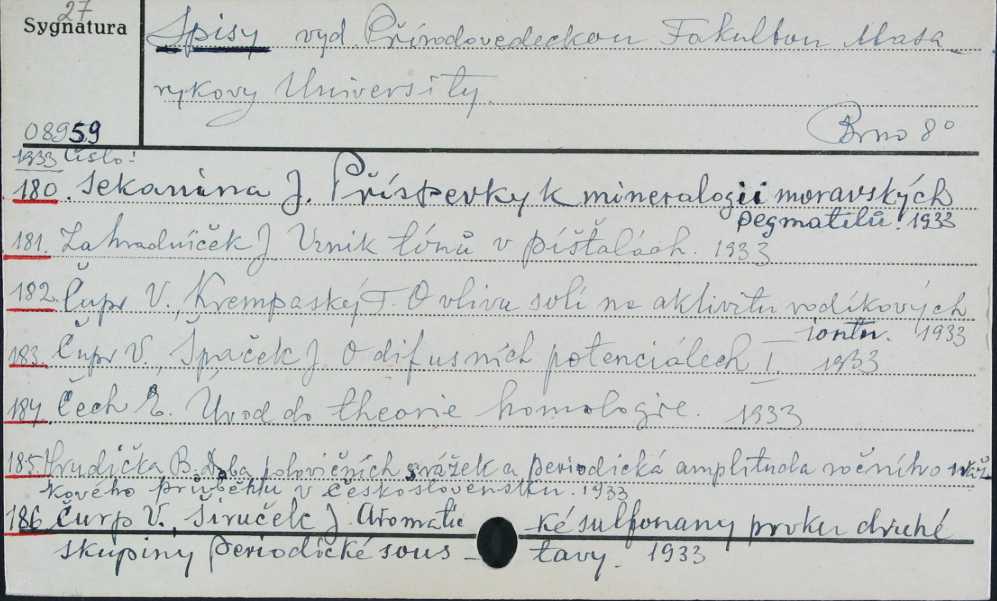 27
Sygnatura
Spisy vyd. Přírodovedeckou Fakultou Masa-
rykovy University.
08959
Brno 8°
1933 číslo:
180. Sekanina J. Příspevky k mineralogii moravských
pegmatitů. 1933
181. Zahradníček J Vznik tónů v píšťalách. 1933
182. Čupr V., Krempaskéj T. O vlivu solí na aktivitu vodíkových
iontu. 1933
183. Čupr V., Špaček J. O difusních potenciálech I. 1933
184. Čech E. Úvod do theorie homologie. 1933
185. Hrudička B. Doba polovičních srážek a periodická amplituda ročního sráž
kového průběhu v Československu. 1933
186 Čurp V., Širuček J. Aromatic ké sulfonany prvku druhé
skupiny periodické sous- tavy. 1933